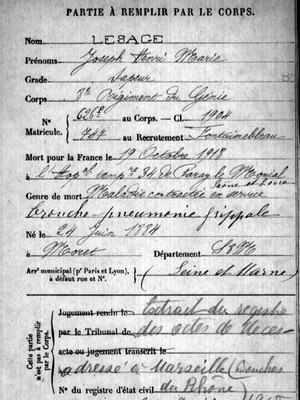 PARTIE À REMPLIR PAR LE CORPS.
Nom LESAGE
Prénoms Joseph Henri Marie
Grade Sapeur
Corps 8e Régiment du Génie
N° 626 au Corps. — Cl. 1904
Matricule. 747 au Recrutement Fontainebleau
Mort pour la France le 19 Octobre 1918
à l'Hop comp 34 de Paray le Monial
Saône et Loire
Genre de mort Maladie contractée en service
Broncho-pneumonie grippale
Né le 24 Juin 1884
à Moret Département S&M
Arr' municipal (p' Paris et Lyon),
à défaut rue et N°.
(Seine et Marne)
Cette partie
n'est pas à remplir
par le Corps.
Jugement rendu le Extrait du registre
par le Tribunal de des actes de décès
acte ou jugement transcrit le
adressé à Marseille (Bouches
N° du registre d'état civil du Rhône)